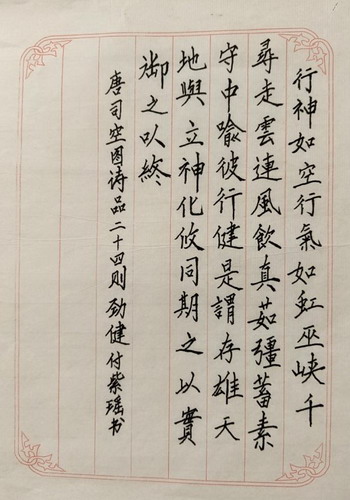 行神如空行氣如虹巫峽千
尋走雲連風飲真茹彊蓄素
守中喻彼行健是謂存雄天
地與立神化攸同期之以實
御之以終
唐司空图诗品二十四则劲健付紫瑶书